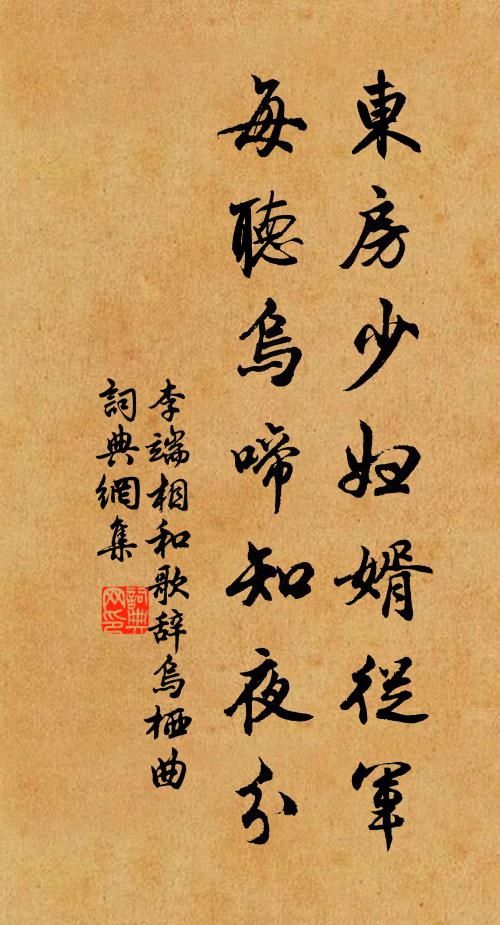 東房少婦婿從軍
每聽烏啼知夜分
李端相和歌辭烏栖曲
詞典網集
詞典网印